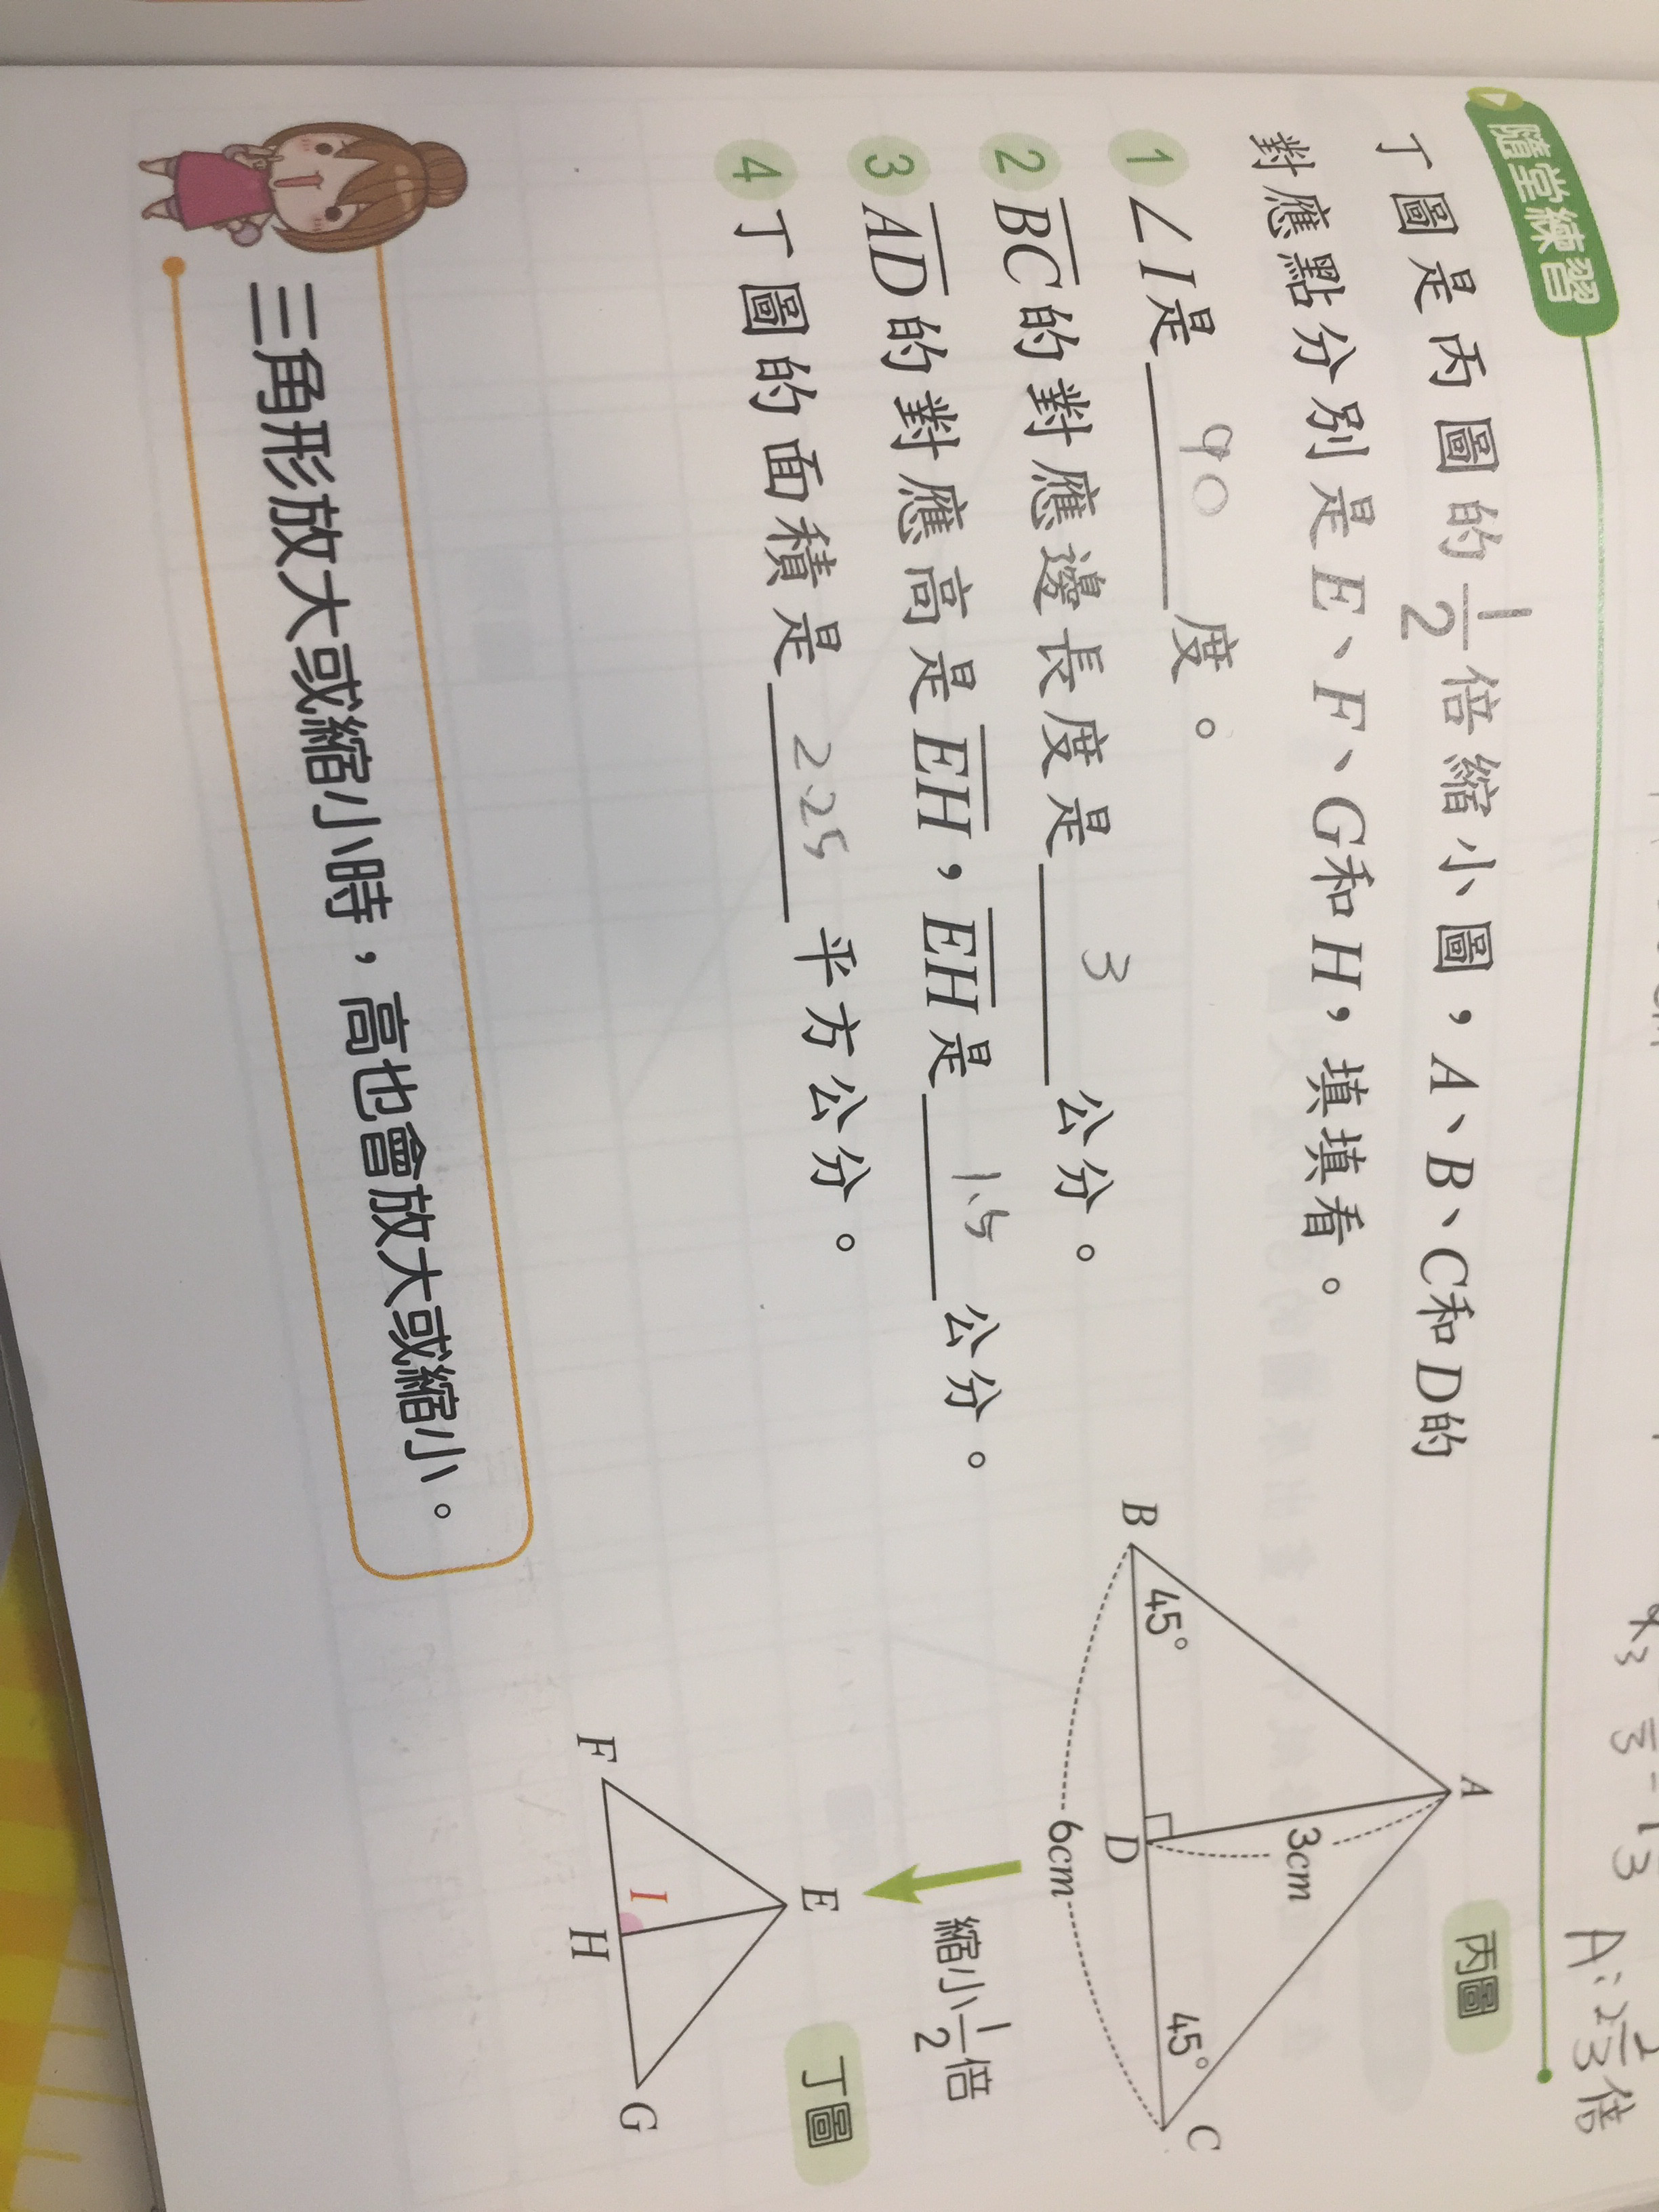 隨堂練習
丁圖是丙圖的1/2倍縮小圖，A、B、C和D的
對應點分別是E、F、G和H，填填看。
1 ∠I是 90 度。
2 BC的對應邊長度是 3 公分。
3 AD的對應高是EH，EH是 1.5 公分。
4 丁圖的面積是 2.25 平方公分。
丙圖
A
3cm
B
45°
D
45°
C
6cm
縮小1/2倍
丁圖
E
I
F
H
G
三角形放大或縮小時，高也會放大或縮小。
A:2 2/3倍